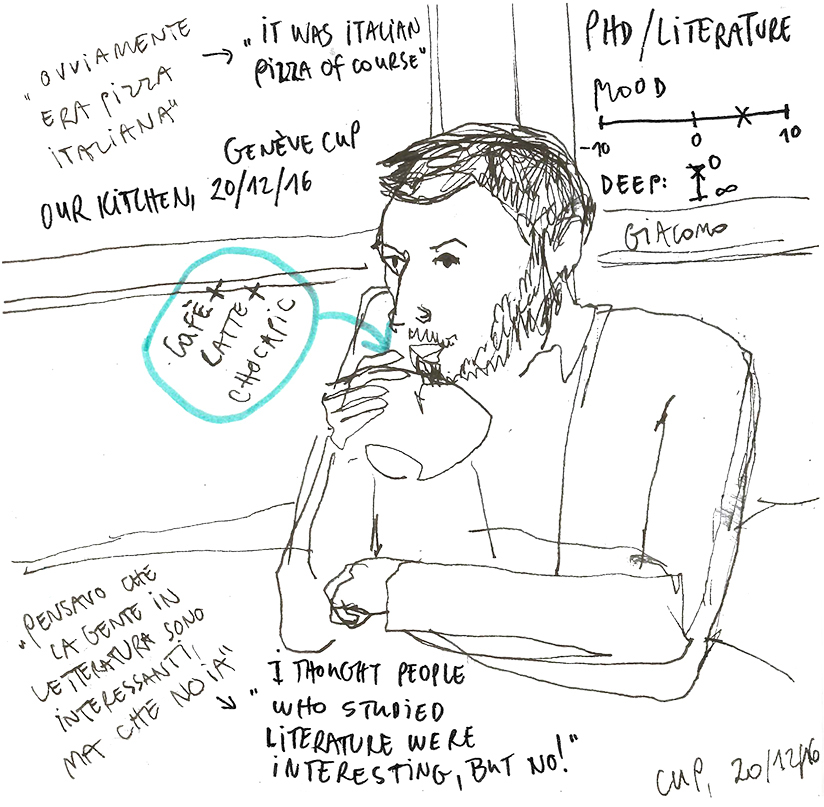 "OVVIAMENTE
ERA PIZZA
ITALIANA"
→ "IT WAS ITALIAN
PIZZA OF COURSE"
GENÈVE CUP
OUR KITCHEN, 20/12/16
PHD/LITERATURE
MOOD
-10 0 10
DEEP: 0
∞
GIACOMO
CAFÈ +
LATTE +
CHOCAPIC
"PENSAVO CHE
LA GENTE IN
LETTERATURA SONO
INTERESSANTI,
MA CHE NOIA"
"I THOUGHT PEOPLE
WHO STUDIED
LITERATURE WERE
INTERESTING, BUT NO!"
CUP, 20/12/16